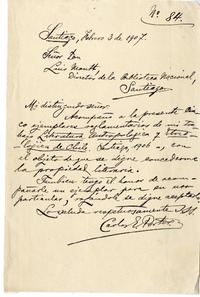 No. 84.
Santiago, Febrero 3 de 1907.
Señor Don
Luis Montt
Director de la Biblioteca Nacional,
Santiago.
Mi distinguido señor:
Acompaño a la presente
ejemplares reglamentarios de mi tra-
bajo Literatura Antropolójica y Etno-
lójica de Chile, Santiago 1906, con
el objeto de que se digne concederme
la propiedad literaria.
Tambien tengo el honor de acom-
pañarle un ejemplar para su uso
particular, rogándole se digne aceptarlo.
Lo saluda respetuosamente
Carlos E. Porter